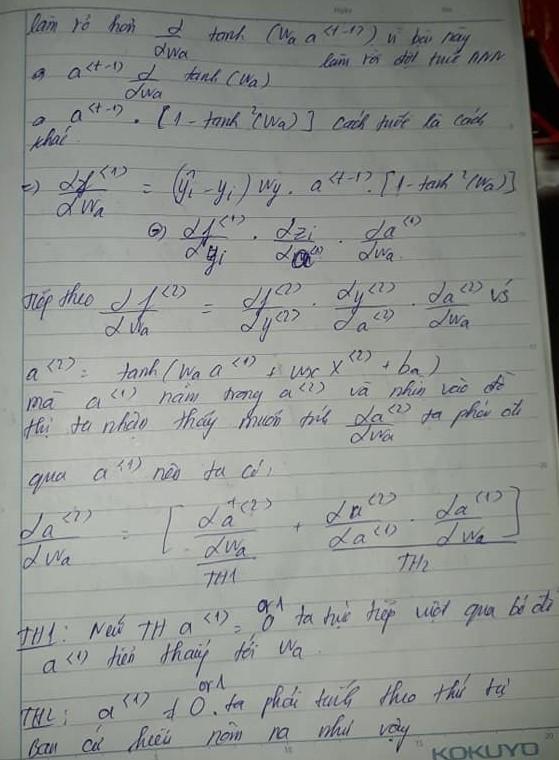 làm rõ hơn d/dWa tanh (Wa a<t-1>) vì bài này
làm rồi đối với RNN
=> a<t-1> d/dWa tanh(Wa)
=> a<t-1> . [1 - tanh²(Wa)] Cách trước là cách
khác.
=> dJ<1>/dWa = (ŷi - yi) Wy . a<t-1> . [1 - tanh²(Wa)]
<=> dJ<1>/dyi . dzi/da<1> . da<1>/dWa
Tiếp theo dJ<2>/dWa = dJ<2>/dy<2> . dy<2>/da<2> . da<2>/dWa với
a<2> = tanh(Wa a<1> + Wx X<2> + ba)
mà a<1> nằm trong a<2> và nhìn vào đồ
thị ta nhận thấy muốn tính da<2>/dWa ta phải đi
qua a<1> nên ta có:
da<2>/dWa = [ da<2>/dWa + da<2>/da<1> . da<1>/dWa ]
TH1 TH2
TH1: Nếu TH a<1> = 0 or 1 ta trực tiếp vượt qua bỏ đi
a<1> tiến thẳng tới Wa.
TH2: a<1> ≠ 0 or 1. ta phải tính theo thứ tự
bạn cứ hiểu nôm na như vậy
KOKUYO